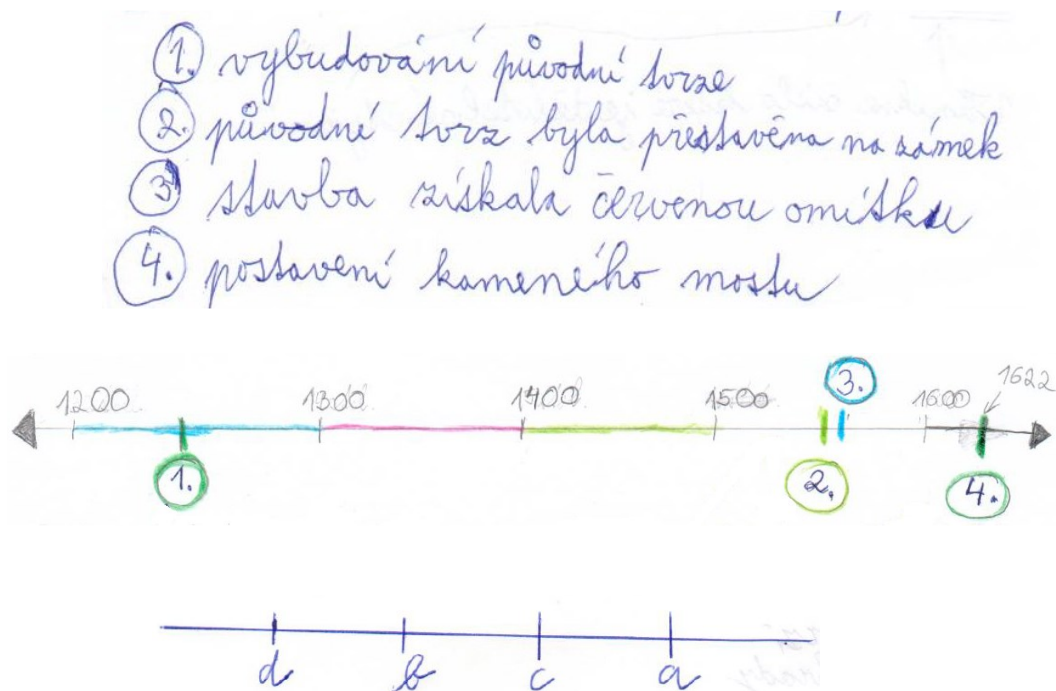 1. vybudování původní tvrze
2. původné tvrz byla přestavěna na zámek
3. stavba získala červenou omítku
4. postavení kameného mostu
1200 1300 1400 1500 3. 1600 1622
1. 2. 4.
d b c a